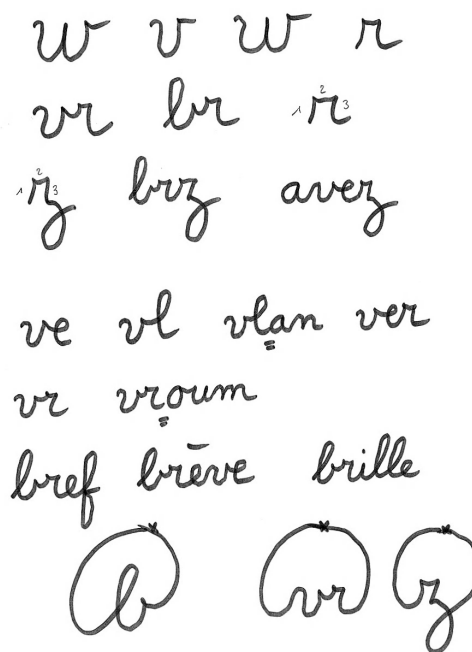 w v w r
vr br 1 r 2 3
1 z 2 3 brz avez
ve vl vlan ver
vr vroum
bref brève brille
b vr z